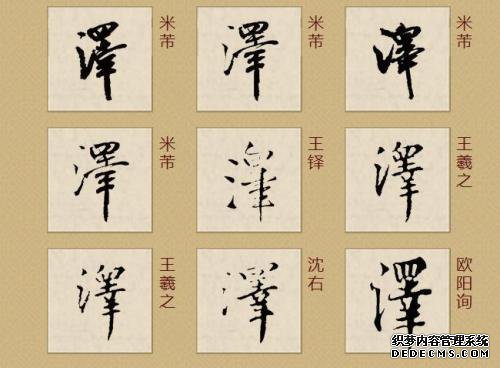 澤 米芾 澤 米芾 澤 米芾
澤 米芾 澤 王铎 澤 王羲之
澤 王羲之 澤 沈右 澤 欧阳询
织梦内容管理系统
DEDECMS.COM